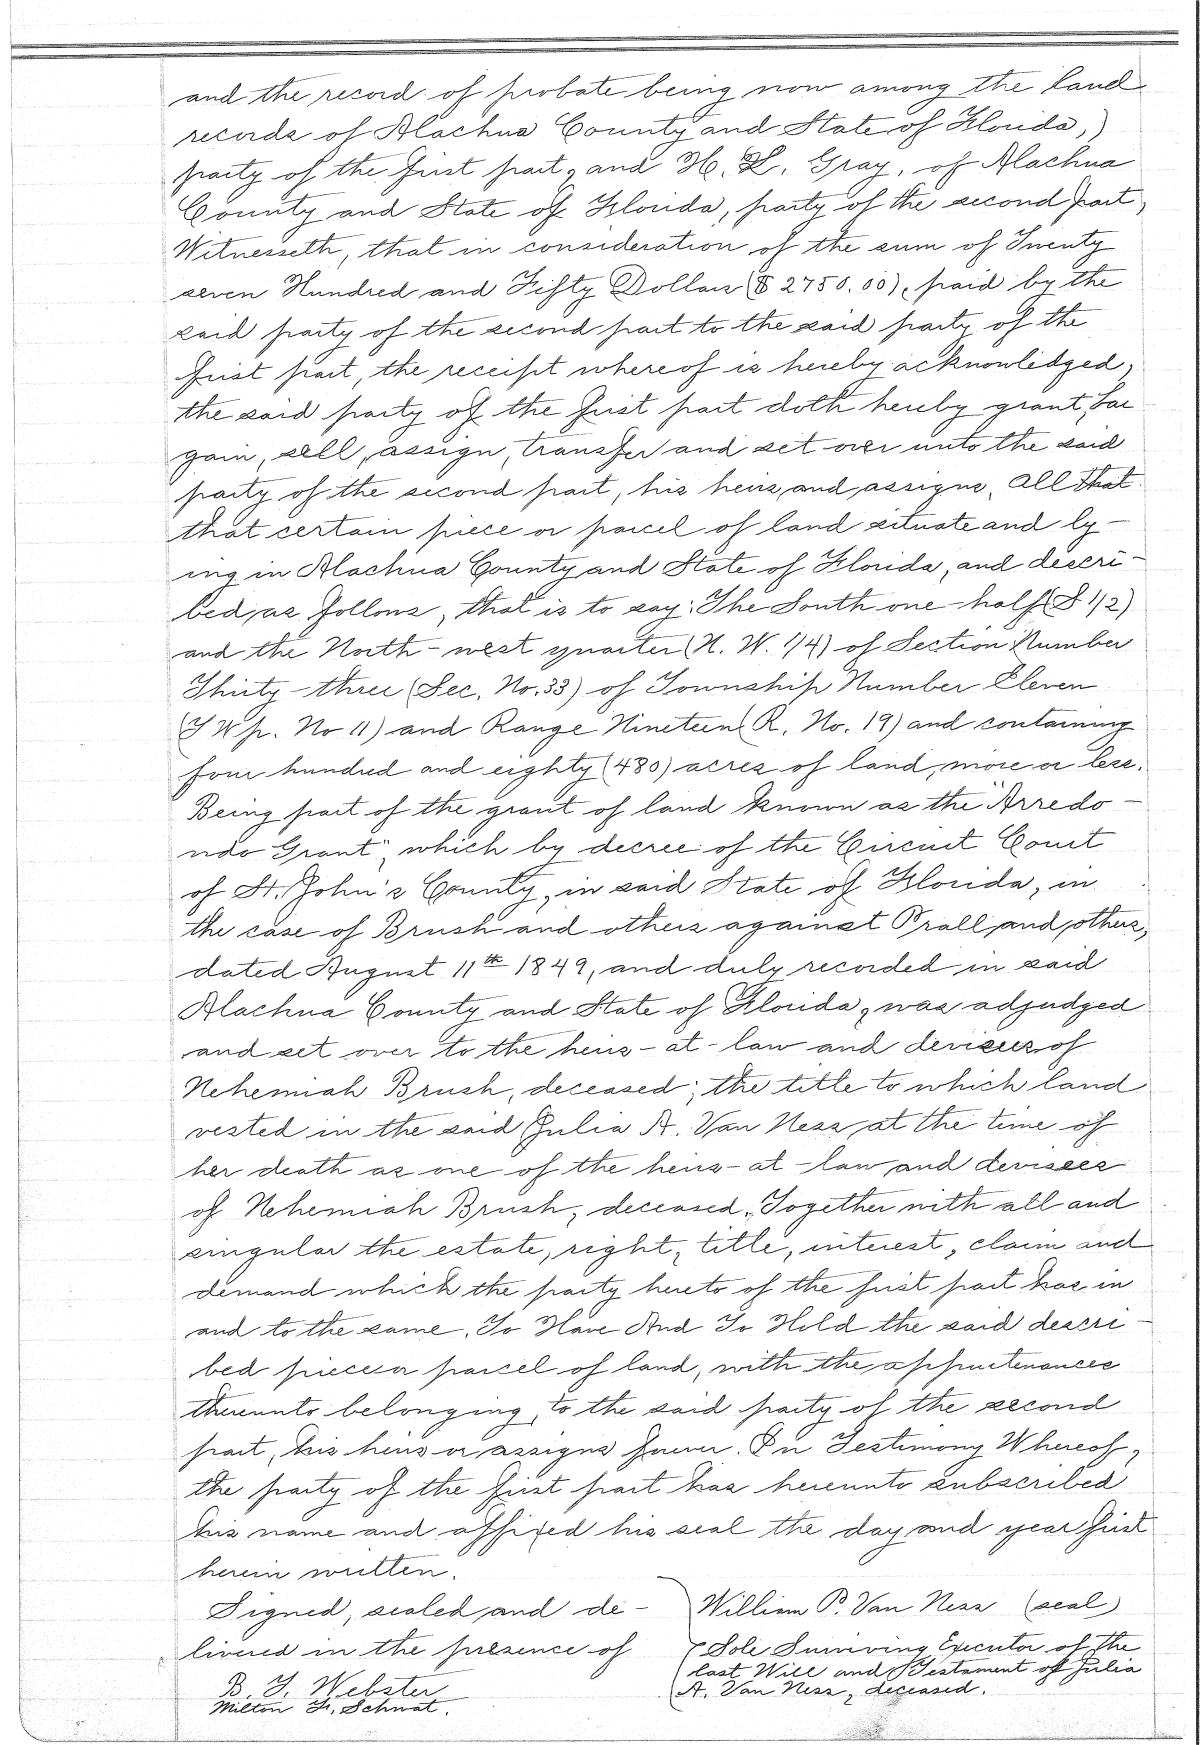 and the record of probate being now among the land
records of Alachua County and State of Florida,)
party of the first part, and H. L. Gray, of Alachua
County and State of Florida, party of the second part,
Witnesseth, that in consideration of the sum of Twenty
seven Hundred and Fifty Dollars ($2750.00), paid by the
said party of the second part to the said party of the
first part, the receipt whereof is hereby acknowledged,
the said party of the first part doth hereby grant, bar
gain, sell, assign, transfer and set over unto the said
party of the second part, his heirs and assigns, All that
that certain piece or parcel of land situate and ly-
ing in Alachua County and State of Florida, and descri-
bed as follows, that is to say: The South one half (S 1/2)
and the North-west quarter (N. W. 1/4) of Section Number
Thirty-three (Sec. No. 33) of Township Number Eleven
(T Wp. No 11) and Range Nineteen (R. No. 19) and containing
four hundred and eighty (480) acres of land, more or less.
Being part of the grant of land known as the "Arredo-
ndo Grant", which by decree of the Circuit Court
of St. John's County, in said State of Florida, in
the case of Brush and others against Prall and others,
dated August 11th 1849, and duly recorded in said
Alachua County and State of Florida, was adjudged
and set over to the heirs-at-law and devisees of
Nehemiah Brush, deceased; the title to which land
vested in the said Julia A. Van Ness at the time of
her death as one of the heirs-at-law and devisees
of Nehemiah Brush, deceased, Together with all and
singular the estate, right, title, interest, claim and
demand which the party hereto of the first part has in
and to the same. To Have And To Hold the said descri-
bed piece or parcel of land, with the appurtenances
thereunto belonging, to the said party of the second
part, his heirs or assigns forever. In Testimony Whereof,
the party of the first part has hereunto subscribed
his name and affixed his seal the day and year first
herein written.
Signed, sealed and de- William P. Van Ness (seal)
livered in the presence of Sole Surviving Executor of the
last Will and Testament of Julia
B. T. Webster A. Van Ness, deceased.
Milton